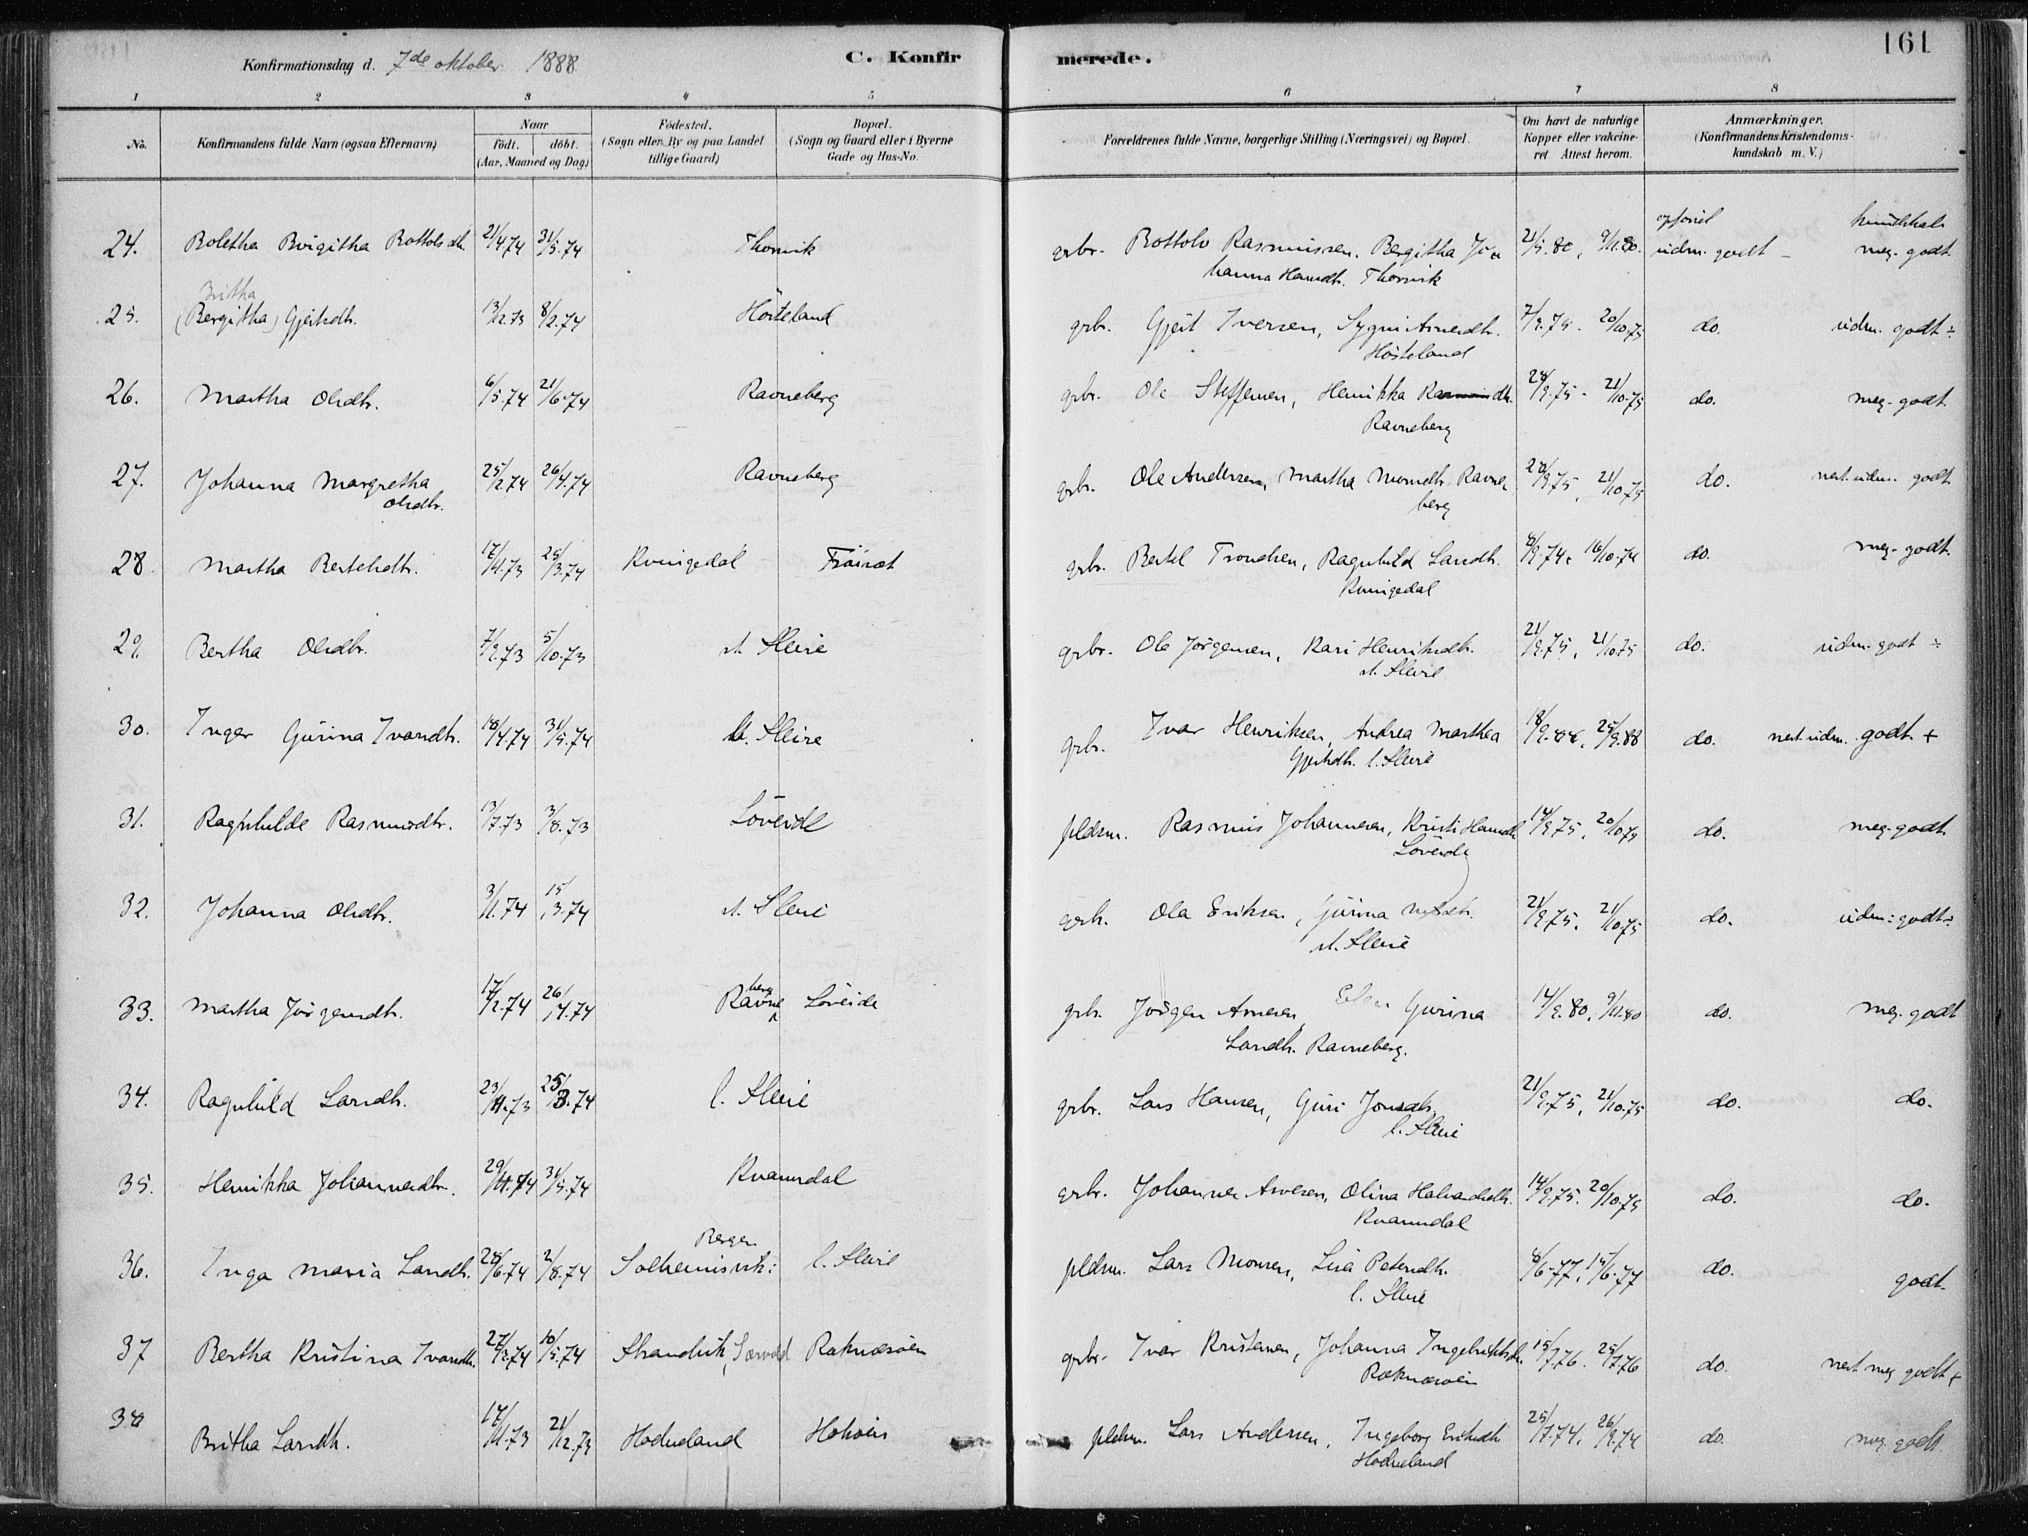 161
Konfirmationsdag d. 7de oktober 1888
C. Konfirmerede.
1 2 3 4 5 6 7 8
No.
Konfirmandens fulde Navn (ogsaa Efternavn)
Naar
født. døbt.
(Aar, Maaned og Dag)
Fødested.
(Sogn eller By og paa Landet
tillige Gaard)
Bopæl.
(Sogn og Gaard eller i Byerne
Gade og Hus-No.
Forældrenes fulde Navne, borgerlige Stilling (Næringsvei) og Bopæl.
Om havt de naturlige
Kopper eller vakcine-
ret. Attest herom.
Anmærkninger.
(Konfirmandens Kristendoms-
kundskab m. V.)
opførsel kundskab
24. Boletha Birgitha Bottolsdtr. 21/4.74 31/5.74 Thorsvik grbr. Bottolv Rasmussen, Bergitha Jo- 21/5.80, 9/11.80. udm. godt - meg. godt
hanna Hansdtr. Thorsvik
Britha
25. (Bergitha) Gjertsdtr. 13/12.73 8/2.74 Hösteland grbr. Gjert Iversen, Sygni Arnesdtr. 7/9.75. 20/10.75 do. udm. godt ÷
Hösteland
26. Martha Olsdtr. 6/5.74 21/6.74 Ravneberg grbr. Ole Steffensen, Henrikka 28/9.75 - 21/10.75 do. meg. godt.
Ravneberg
27. Johanna Margretha 25/2.74 26/4.74 Ravneberg grbr. Ole Andersen, Martha Monsdtr. Ravne- 28/9.75, 21/10.75 do. nest. udm. godt
Olsdtr. berg
28. Martha Bertelsdtr. 17/11.73 25/3.74 Kvingedal Fröiset grbr. Bertel Trondsen, Ragnhild Larsdtr. 8/9.74, 16/10.74 do. meg. godt.
Kvingedal
29. Bertha Olsdtr. 7/9.73 5/10.73 st. Sleire grbr. Ole Jörgensen, Kari Henriksdtr. 21/9.75, 21/10.75 do. udm. godt ÷
st. Sleire
30. Inger Gurina Ivarsdtr. 18/4.74 31/5.74 Sleire grbr. Ivar Henriksen, Andrea Marthea 18/9.88, 25/9.88 do. nest. udm. godt. +
Gjertsdtr. l. Sleire
31. Ragnhilde Rasmusdtr. 13/7.73 3/8.73 Löveide pldsm. Rasmus Johannesen, Kristi Hansdtr. 14/9.75, 20/10.75 do. meg. godt.
Löveide
32. Johanna Olsdtr. 3/1.74 15/3.74 st. Sleire grbr. Ola Eriksen, Gurina st. Sleire 21/9.75, 21/10.75 do. udm. godt ÷
33. Martha Jörgensdtr. 17/2.74 26/4.74 Ravneberg Löveide grbr. Jörgen Arnesen, Gurina 14/9.80, 9/11.80 do. meg. godt
Larsdtr. Ravneberg.
34. Ragnhild Larsdtr. 23/11.73 25/3.74 l. Sleire grbr. Lars Hansen, Guri Jonsdtr. 21/9.75, 21/10.75 do. do.
l. Sleire
35. Henrikka Johannesdtr. 29/4.74 31/5.74 Kvamsdal grbr. Johannes Arnesen, Olina Halvorsdtr. 14/9.75. 20/10.75 do. do.
Kvamsdal
Bergen
36. Inga Maria Larsdtr. 28/6.74 2/8.74 Solheimsvik: l. Sleire pldsm. Lars Monsen, Lisa Petersdtr. 8/6.77, 15/6.77 do. godt.
l. Sleire
37 Bertha Kristina Ivarsdtr. 27/3.74 10/5.74 Strandvik, Særvold Raknæsöen grbr. Ivar Kristensen, Johanna Ingebriktsdtr. 15/7.76. 25/7.76 do. nest. meg. godt +
Raknæsöen
38 Britha Larsdtr. 17/11.73 21/12.73 Hodneland pldsm. Lars Andersen, Ingeborg Eriksdtr. 25/7.74, 26/9.74 do. meg. godt
Hodneland